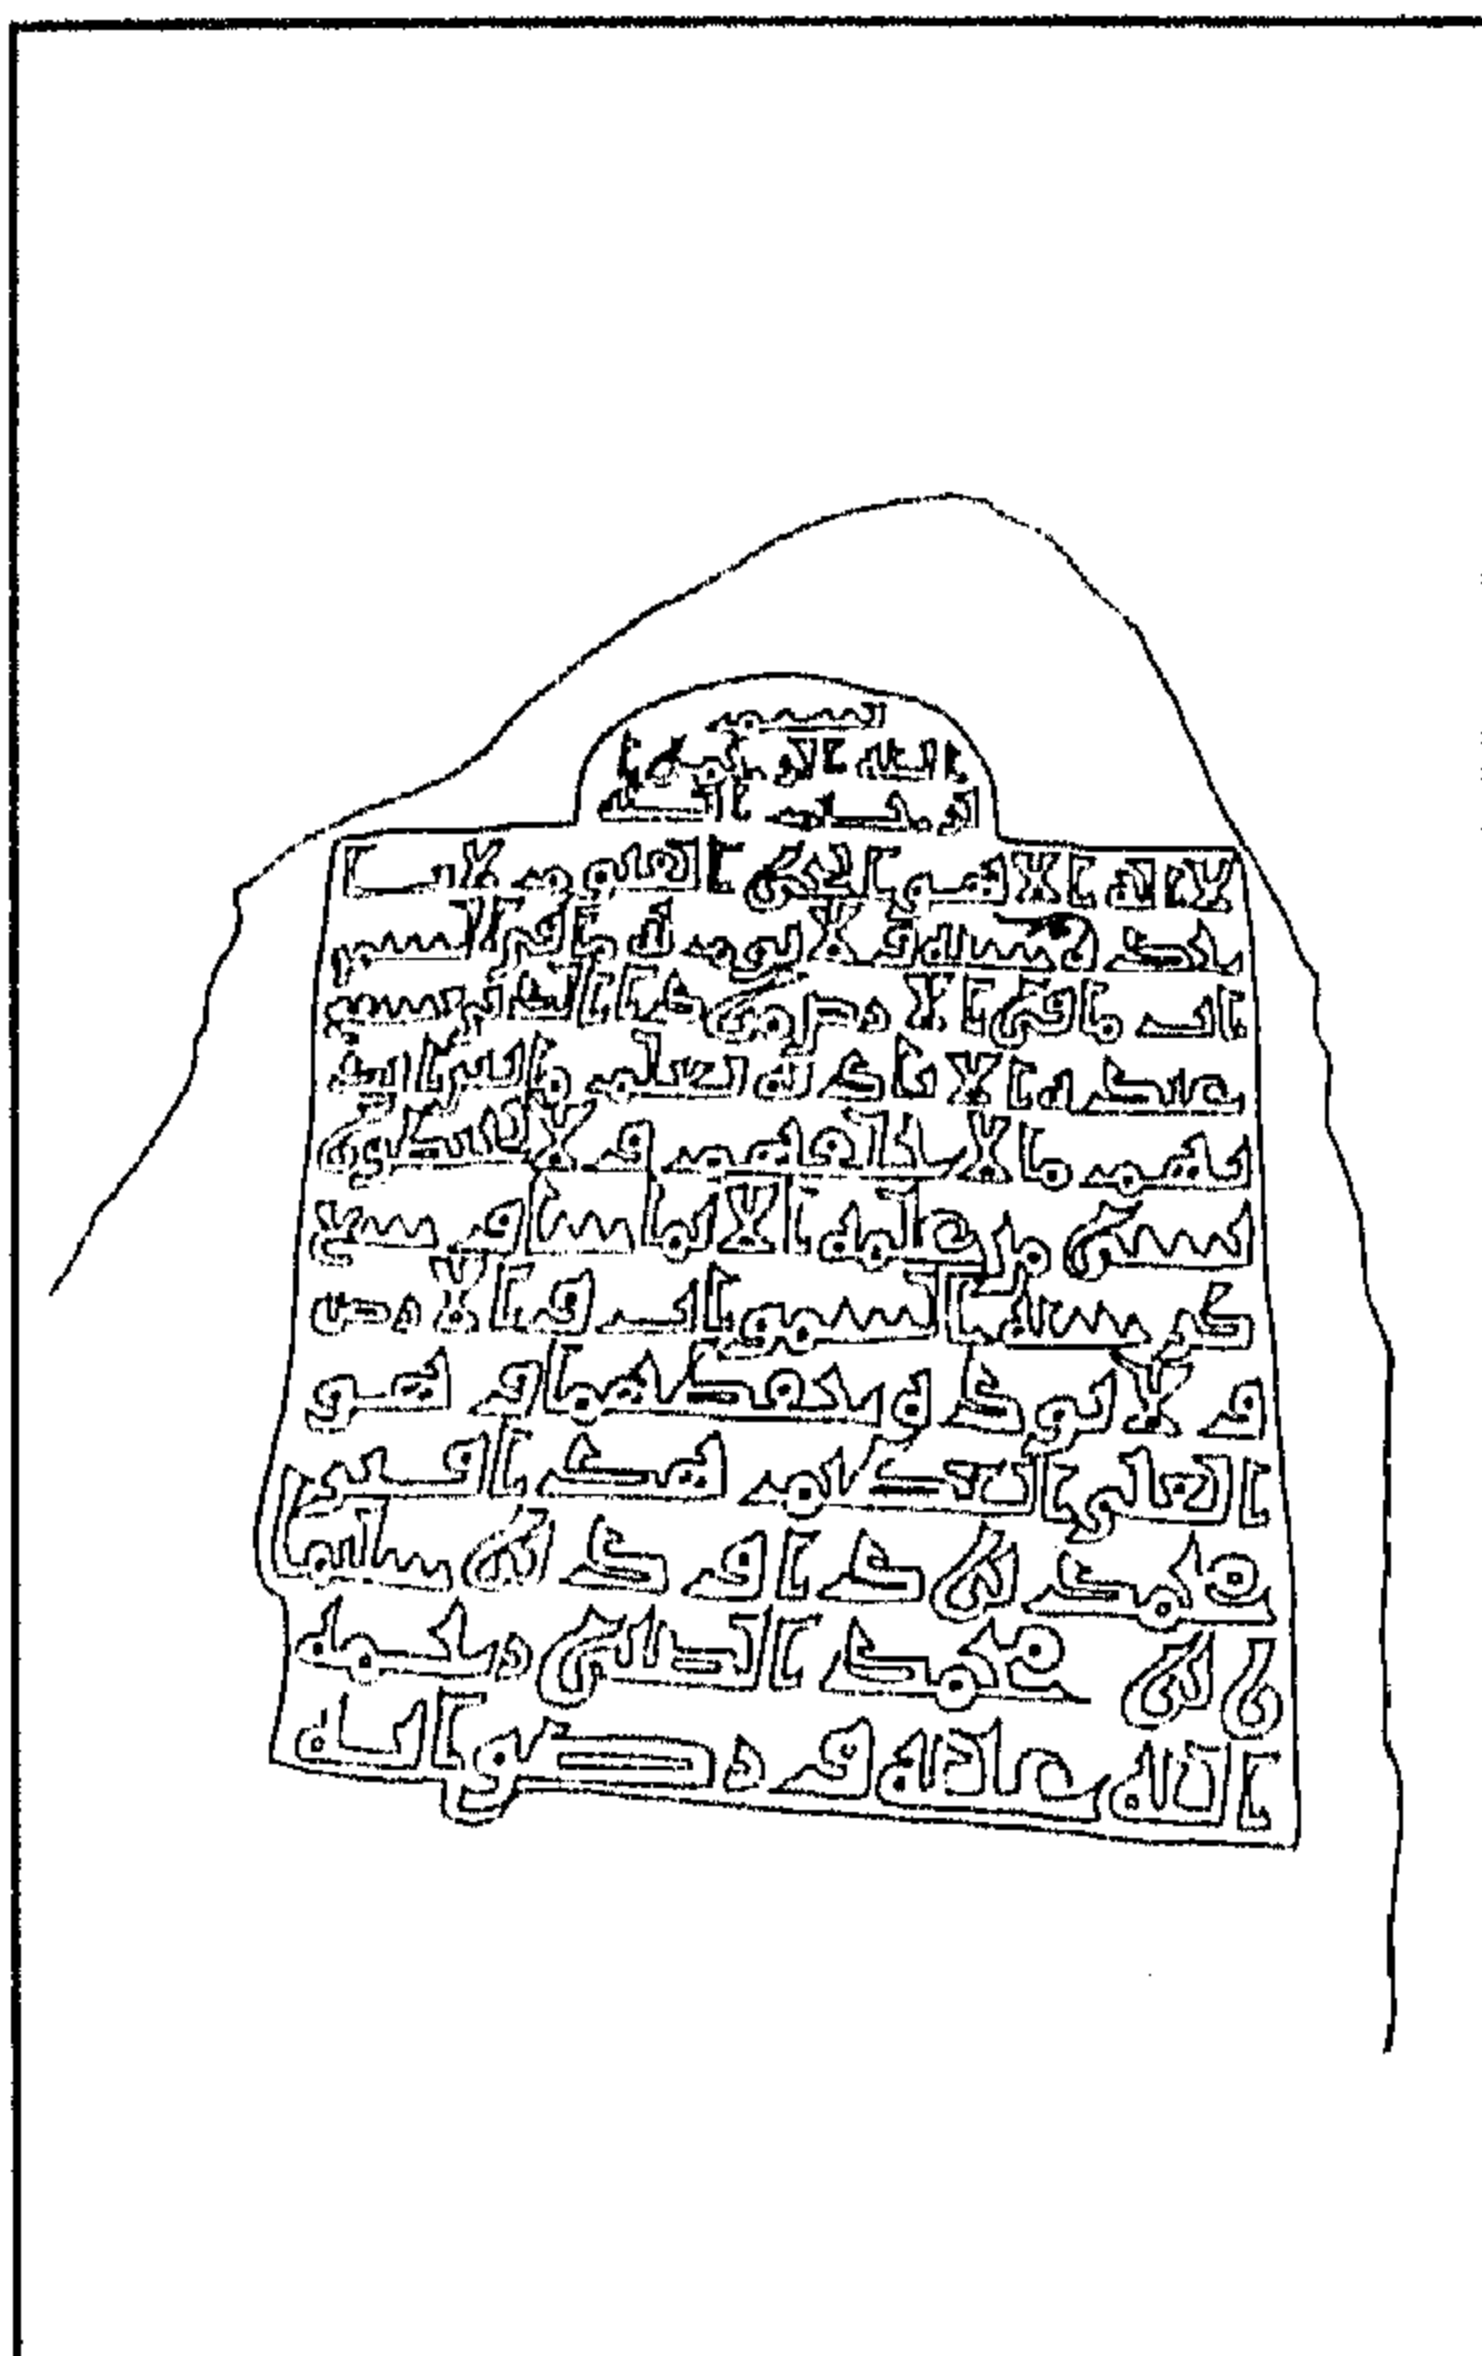 بسم
الله الرحمن ا
لرحيم الله
لا اله الا هو الحي القيوم لا تا
خذه سنة ولا نوم له ما في السمو
ات وما في الارض من ذا الذي يشفع
عنده الا باذنه يعلم ما بين ايد
يهم وما خلفهم ولا يحيطون
بشي من علمه الا بما شا وسع
كرسيه السموات والارض
ولا يوده حفظهما وهو
العلي العظيم هذا قبر
محمد بن داود بن سليما
ن بن محمد رحمة
الله عليه ورضوانه